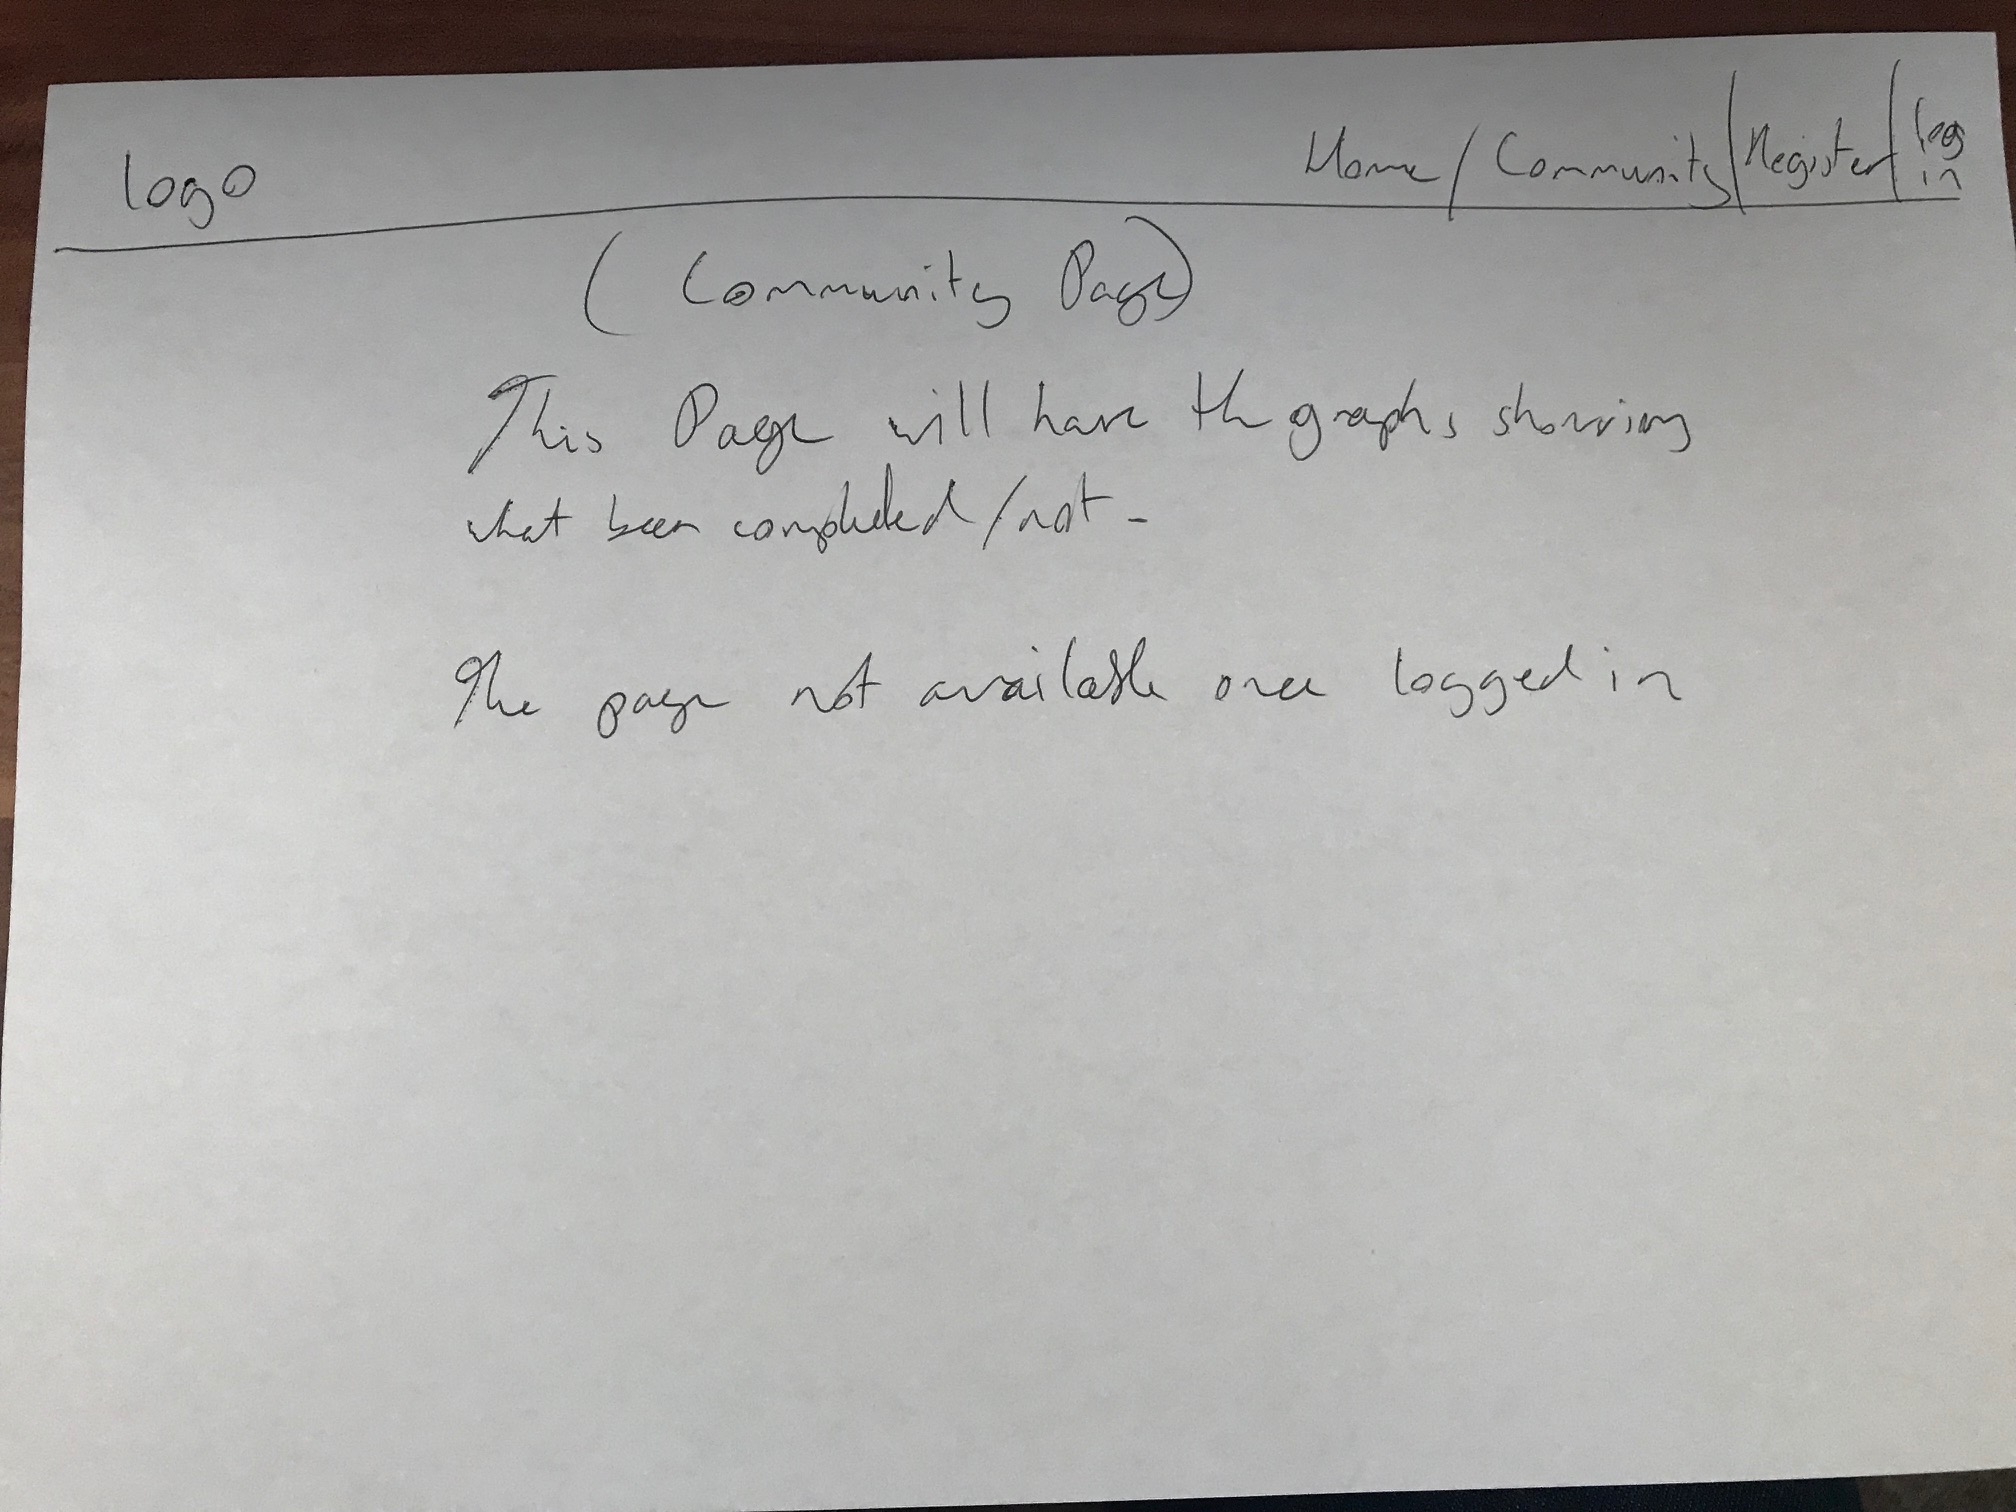 logo
Home / Community / Register / log in
( Community Page )
This Page will have th graphs showing
what been completed / not -
The page not available once logged in